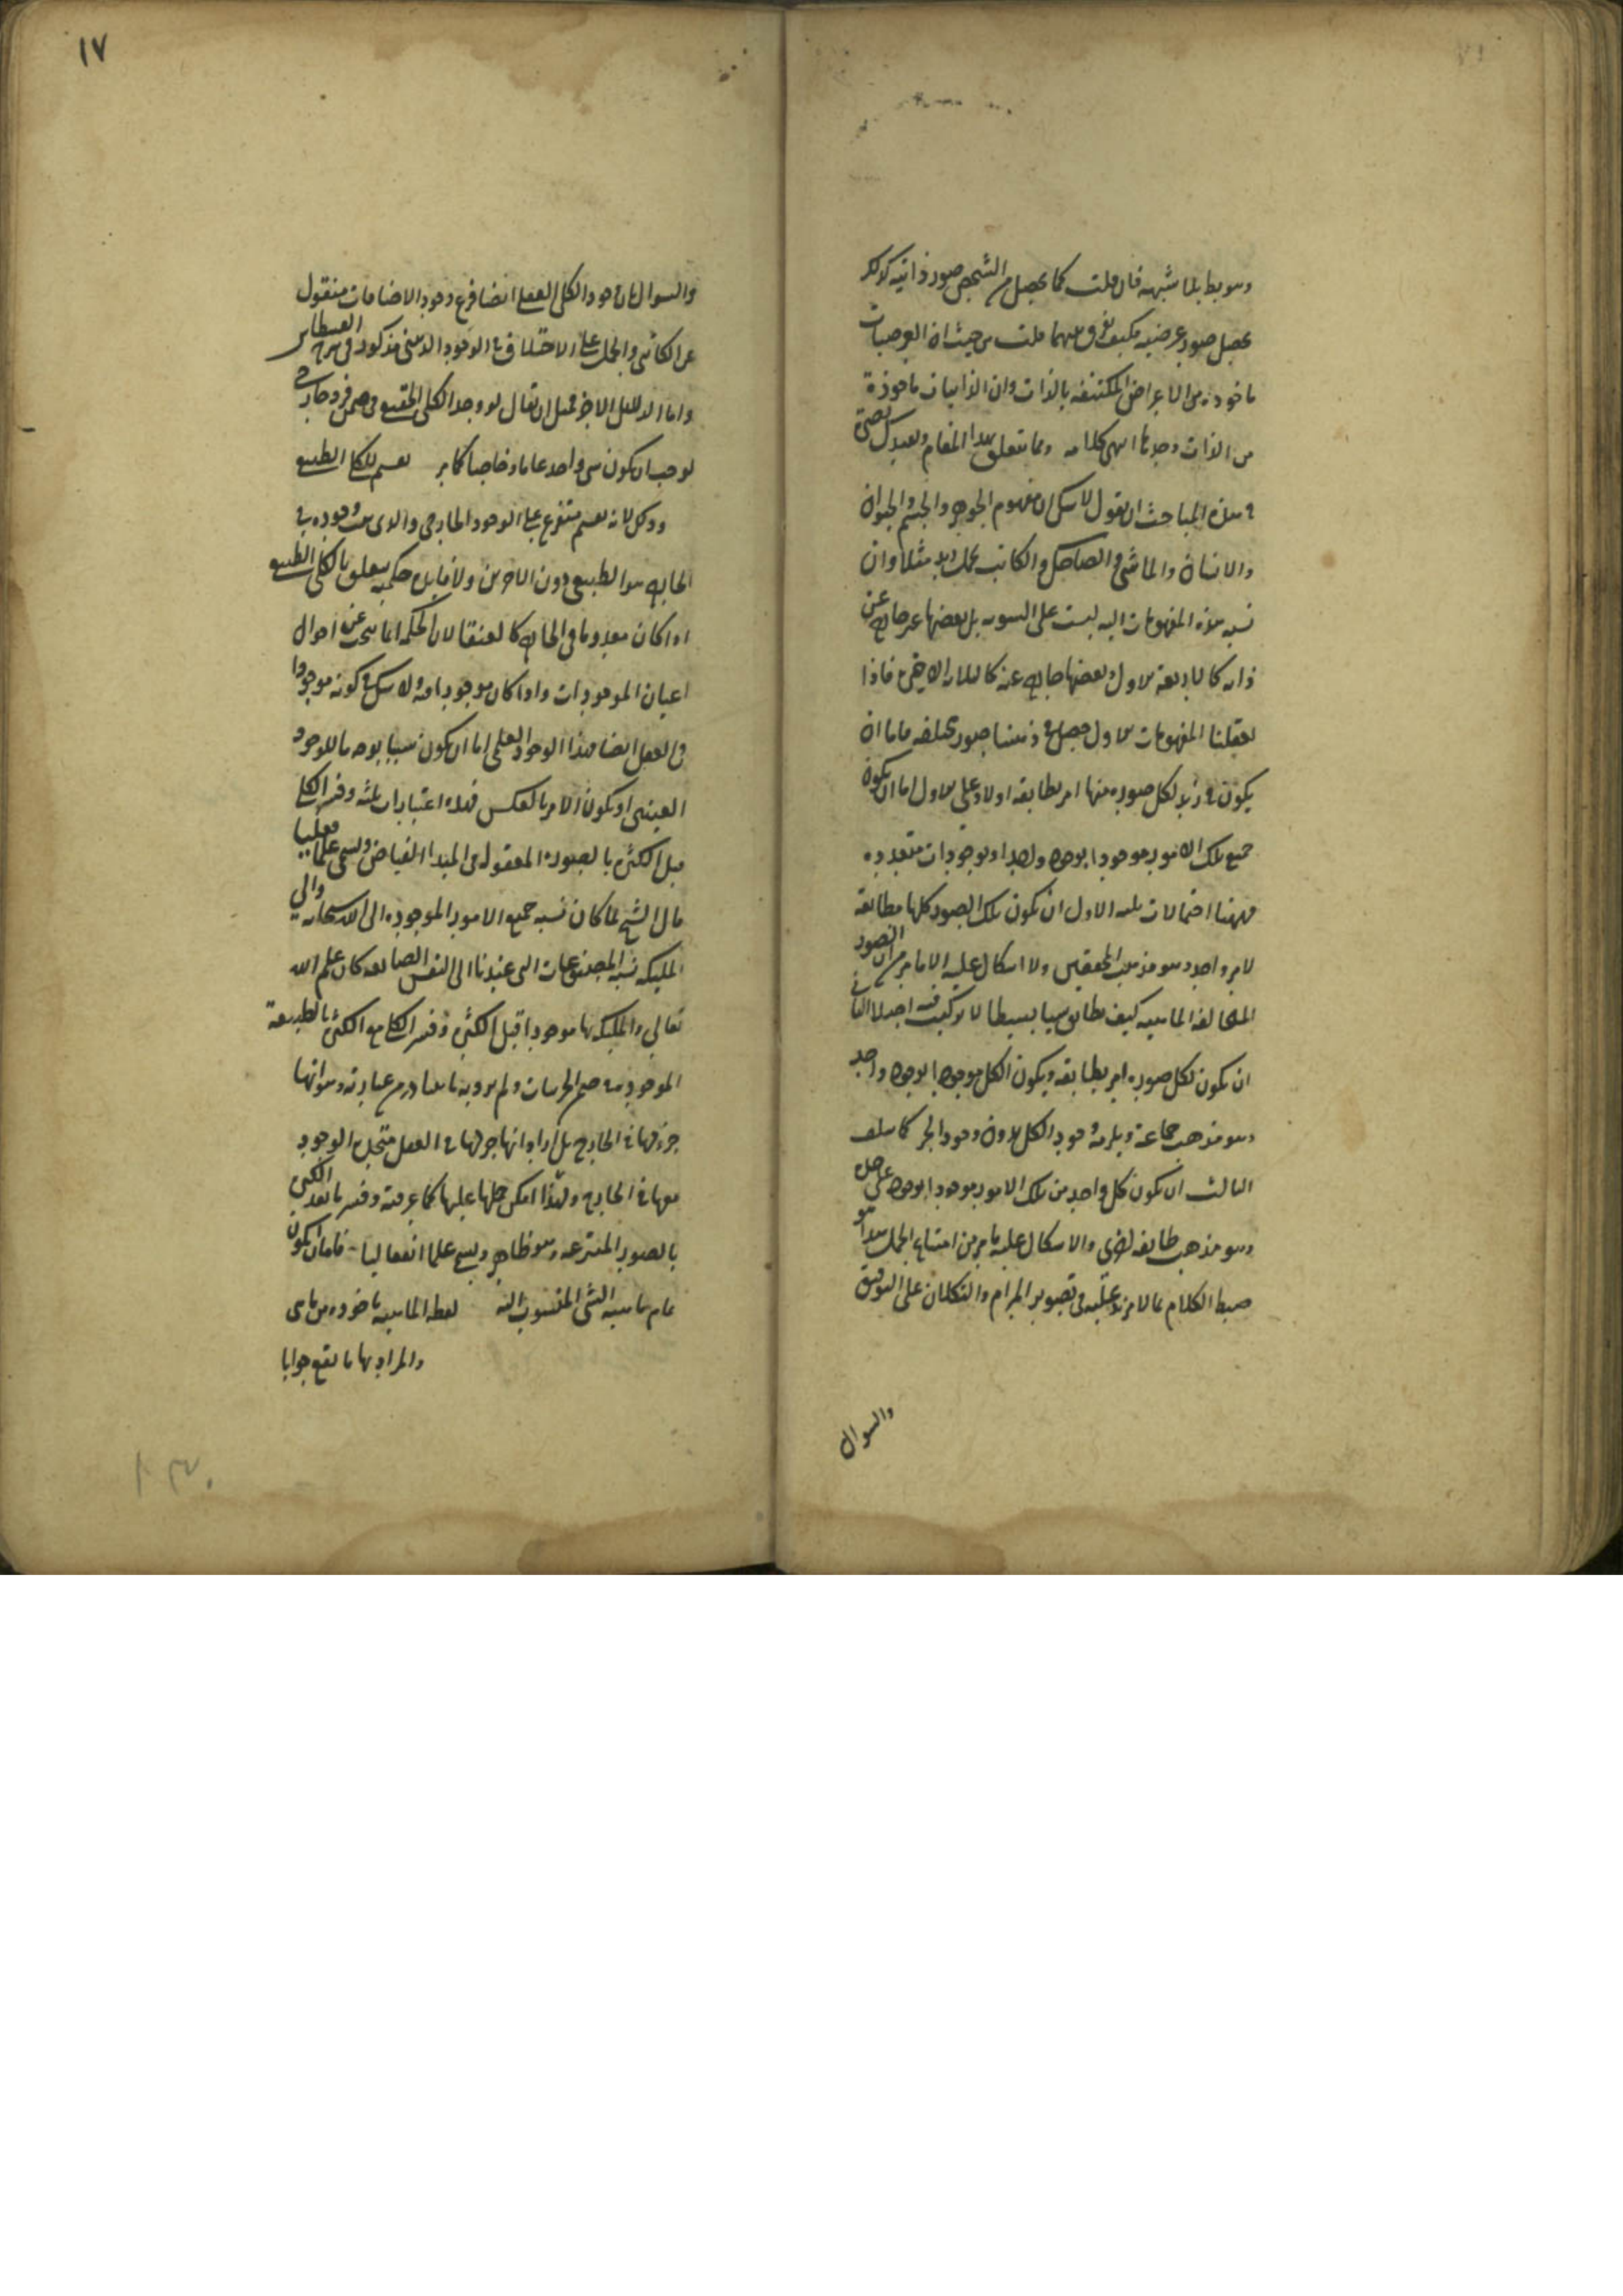 وهو يطابلما شبهه فان قلت كما يحصل من الشخص صور ذاتيه كذلك
يحصل صور عرضيه فكيف نفرق بينهما قلت من حيث ان العرضيات
ماخوذه من الاعراض المكتنفه بالذات وان الذاتيات ماخوذة
من الذات وحدها انتهى كلامه ومما يتعلق بهذا المقام
في هذه المباحث ان نقول لا شك ان مفهوم الجوهر والجسم والحيوان
والانسان والماشى والضاحك والكاتب يحمل على زيد مثلا وان
نسبه هذه المفهومات اليه ليست على السويه بل بعضها غير خارج عن
ذاته كالاربعة الاول وبعضها خارج عنه كالثلاثه الاخرى فاذا
تعقلنا المفهومات الاول حصل في ذهننا صور مختلفه فاما ان
يكون في زيد لكل صوره منها امر يطابقه اولا وعلى الاول اما ان يكون
جميع تلك الامور موجودا بوجود واحد او بوجودات متعدده
فههنا احتمالات ثلثه الاول ان تكون تلك الصور كلها مطابقة
لامر واحد وهو مذهب المحققين ولا اشكال عليه الا ما مر من ان الصور
المتخالفه الماهيه كيف تطابق شيا بسيطا لا تركيب فيه اصلا الثانى
ان يكون لكل صوره امر يطابقه ويكون الكل موجودا بوجود واحد
وهو مذهب جماعة ويلزمه وجود الكل بدون وجود الجزء كما سلف
الثالث ان يكون كل واحد من تلك الامور موجودا بوجود على حده
وهو مذهب طايفه اخرى والاشكال عليه ما مر من امتناع الحمل هذا هو
ضبط الكلام بما لا مزيد عليه في تصوير المرام والتكلان على التوفيق
والسوال
١٧
والسوال بان وجود الكلى العقلى ايضا فرع وجود الاضافات منقول
عن الكاتبى والحمل على الاختلاف في الوجود الذهنى مذكور في شرح القسطاس
واما الدليل الاخر فمثل ان يقال لو وجد الكلى الحقيقى في ضمن فرد خارجى
لوجب ان يكون شى واحد عاما وخاصا كما مر تقسيم للكلى الطبيعى
وذلك لانه تقسيم متفرع على الوجود الخارجى والذى ثبت وجوده في
الخارج هو الطبيعى دون الاخرين ولا فايده حكميه يتعلق بالكلى الطبيعى
اذا كان معدوما في الخارج كالعنقا لان الحكمه انما تبحث عن احوال
اعيان الموجودات واذا كان موجودا فيه ولا شك في كونه موجودا
في العقل ايضا فهذا الوجود العقلى اما ان يكون سببا بوجه ما للوجود
العينى او يكون الامر بالعكس فهذه اعتبارات ثلثه وفسر الكلى
قبل الكثره بالصوره المعقوله في المبدا الفياض ويسمى علما فعليا
قال الشيخ لما كان نسبه جميع الامور الموجوده الى الله سبحانه والى
المليكه نسبه المصنوعات التى عندنا الى النفس الصانعه كان علم الله
تعالى والمليكه بها موجودا قبل الكثره وفسر الكلى مع الكثره بالطبيعة
الموجوده في ضمن الجزييات ولم يرد به ما يتبادر من عبارته وهو انها
جزء منها في الخارج بل اراد انها جزء منها في العقل متحده الوجود
معها في الخارج ولهذا امكن حملها عليها كما عرفته وفسر ما بعد الكثره
بالصور المنتزعه وهو ظاهر ويسمى علما انفعاليا فاما ان يكون
تمام ماهيه الشى المنسوب اليه لفظه الماهيه ماخوذه من ما هى
والمراد بها ما يقع جوابا